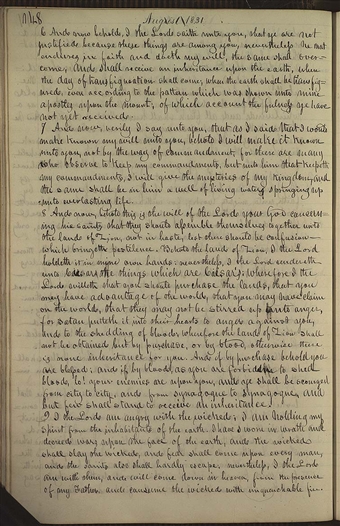 148
August 1831
6 And now, behold, I the Lord saith unto you, that ye are not
justified, because these things are among you, nevertheless he that
endureth in faith and doeth my will, the same shall over-
come, and shall receive an inheritance upon the earth, when
the day of transfiguration shall come; when the earth shall be transfig-
ured, even according to the pattern which was shown unto mine
apostles upon the mount; of which account the fulness ye have
not yet received.
7 And now, verily I say unto you, that as I said that I would
make known my will unto you, behold I will make it known
unto you, not by the way of commandment, for there are many
who observe not to keep my commandments, but unto him that keepeth
my commandments, I will give the mysteries of my kingdom, and
the same shall be in him a well of living water, springing up
unto everlasting life.
8 And now, behold this is the will of the Lord your God concern-
ing his saints, that they should assemble themselves together unto
the land of Zion, not in haste, lest there should be confusion,
which bringeth pestilence. Behold the land of Zion, I the Lord
holdeth it in mine own hands; nevertheless, I the Lord rendereth
unto Cesar the things which are Cesars: wherefore I the
Lord, willeth that you should purchase the lands, that you
may have advantage of the world, that you may have claim
on the world, that they may not be stirred up unto anger;
for satan putteth it into their hearts to anger against you,
and to the shedding of blood; wherefore the land of Zion shall
not be obtained but by purchase, or by blood, otherwise there
is none inheritance for you. And if by purchase behold you
are blessed; and if by blood, as you are forbidden to shed
blood, lo, your enemies are upon you, and ye shall be scourged
from city to city, and from synagogue to synagogue, and
but few shall stand to receive an inheritance.
9 I the Lord am angry with the wicked; I am holding my
spirit from the inhabitants of the earth. I have sworn in wrath and
decreed wars upon the face of the earth, and the wicked
shall slay the wicked, and fear shall come upon every man,
and the saints also shall hardly escape, nevertheless, I the Lord
am with them, and will come down in heaven, from the presence
of my Father, and consume the wicked with unquenchable fire.